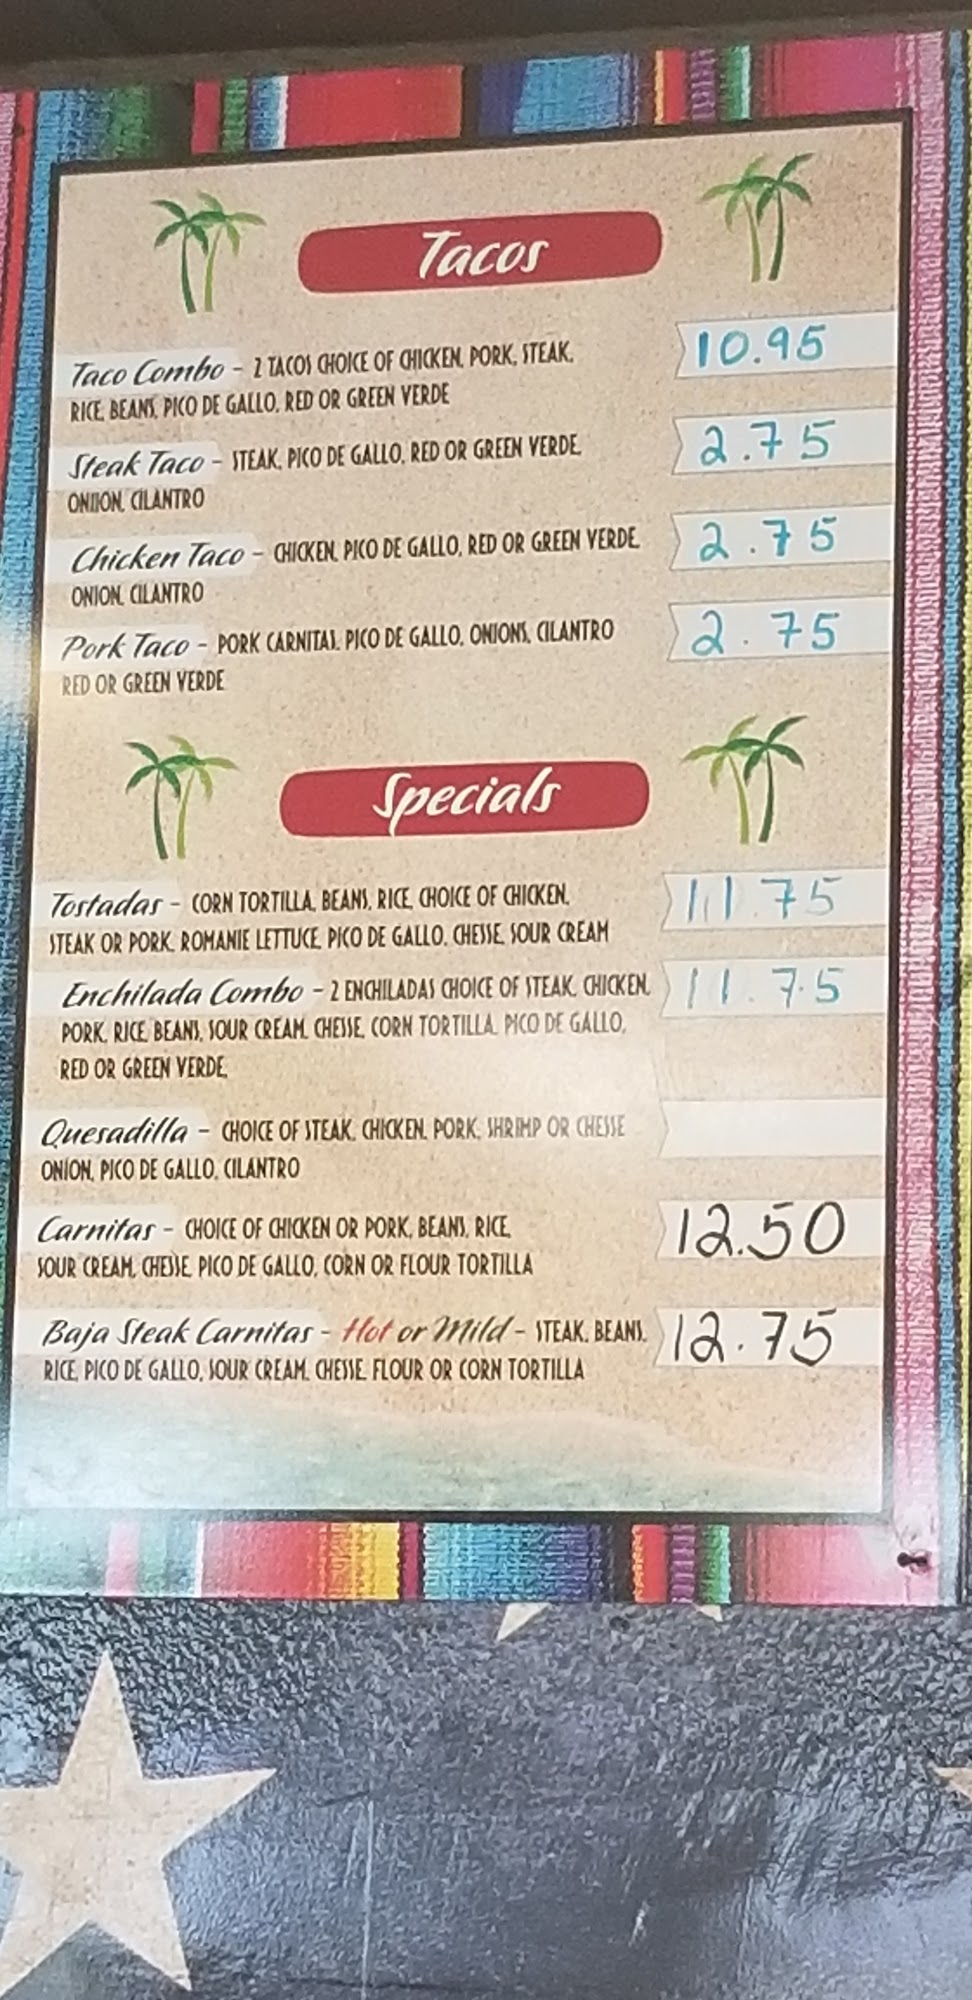 Tacos
Taco Combo - 2 TACOS CHOICE OF CHICKEN, PORK, STEAK, 10.95
RICE, BEANS, PICO DE GALLO, RED OR GREEN VERDE
Steak Taco - STEAK, PICO DE GALLO, RED OR GREEN VERDE, 2.75
ONIION, CILANTRO
Chicken Taco - CHICKEN, PICO DE GALLO, RED OR GREEN VERDE, 2.75
ONION, CILANTRO
Pork Taco - PORK CARNITAS, PICO DE GALLO, ONIONS, CILANTRO 2.75
RED OR GREEN VERDE
Specials
Tostadas - CORN TORTILLA, BEANS, RICE, CHOICE OF CHICKEN, 11.75
STEAK OR PORK, ROMANIE LETTUCE, PICO DE GALLO, CHESSE, SOUR CREAM
Enchilada Combo - 2 ENCHILADAS CHOICE OF STEAK, CHICKEN, 11.75
PORK, RICE, BEANS, SOUR CREAM, CHESSE, CORN TORTILLA, PICO DE GALLO,
RED OR GREEN VERDE,
Quesadilla - CHOICE OF STEAK, CHICKEN, PORK, SHRIMP OR CHESSE
ONION, PICO DE GALLO, CILANTRO
Carnitas - CHOICE OF CHICKEN OR PORK, BEANS, RICE, 12.50
SOUR CREAM, CHESSE, PICO DE GALLO, CORN OR FLOUR TORTILLA
Baja Steak Carnitas - Hot or Mild - STEAK, BEANS, 12.75
RICE, PICO DE GALLO, SOUR CREAM, CHESSE, FLOUR OR CORN TORTILLA